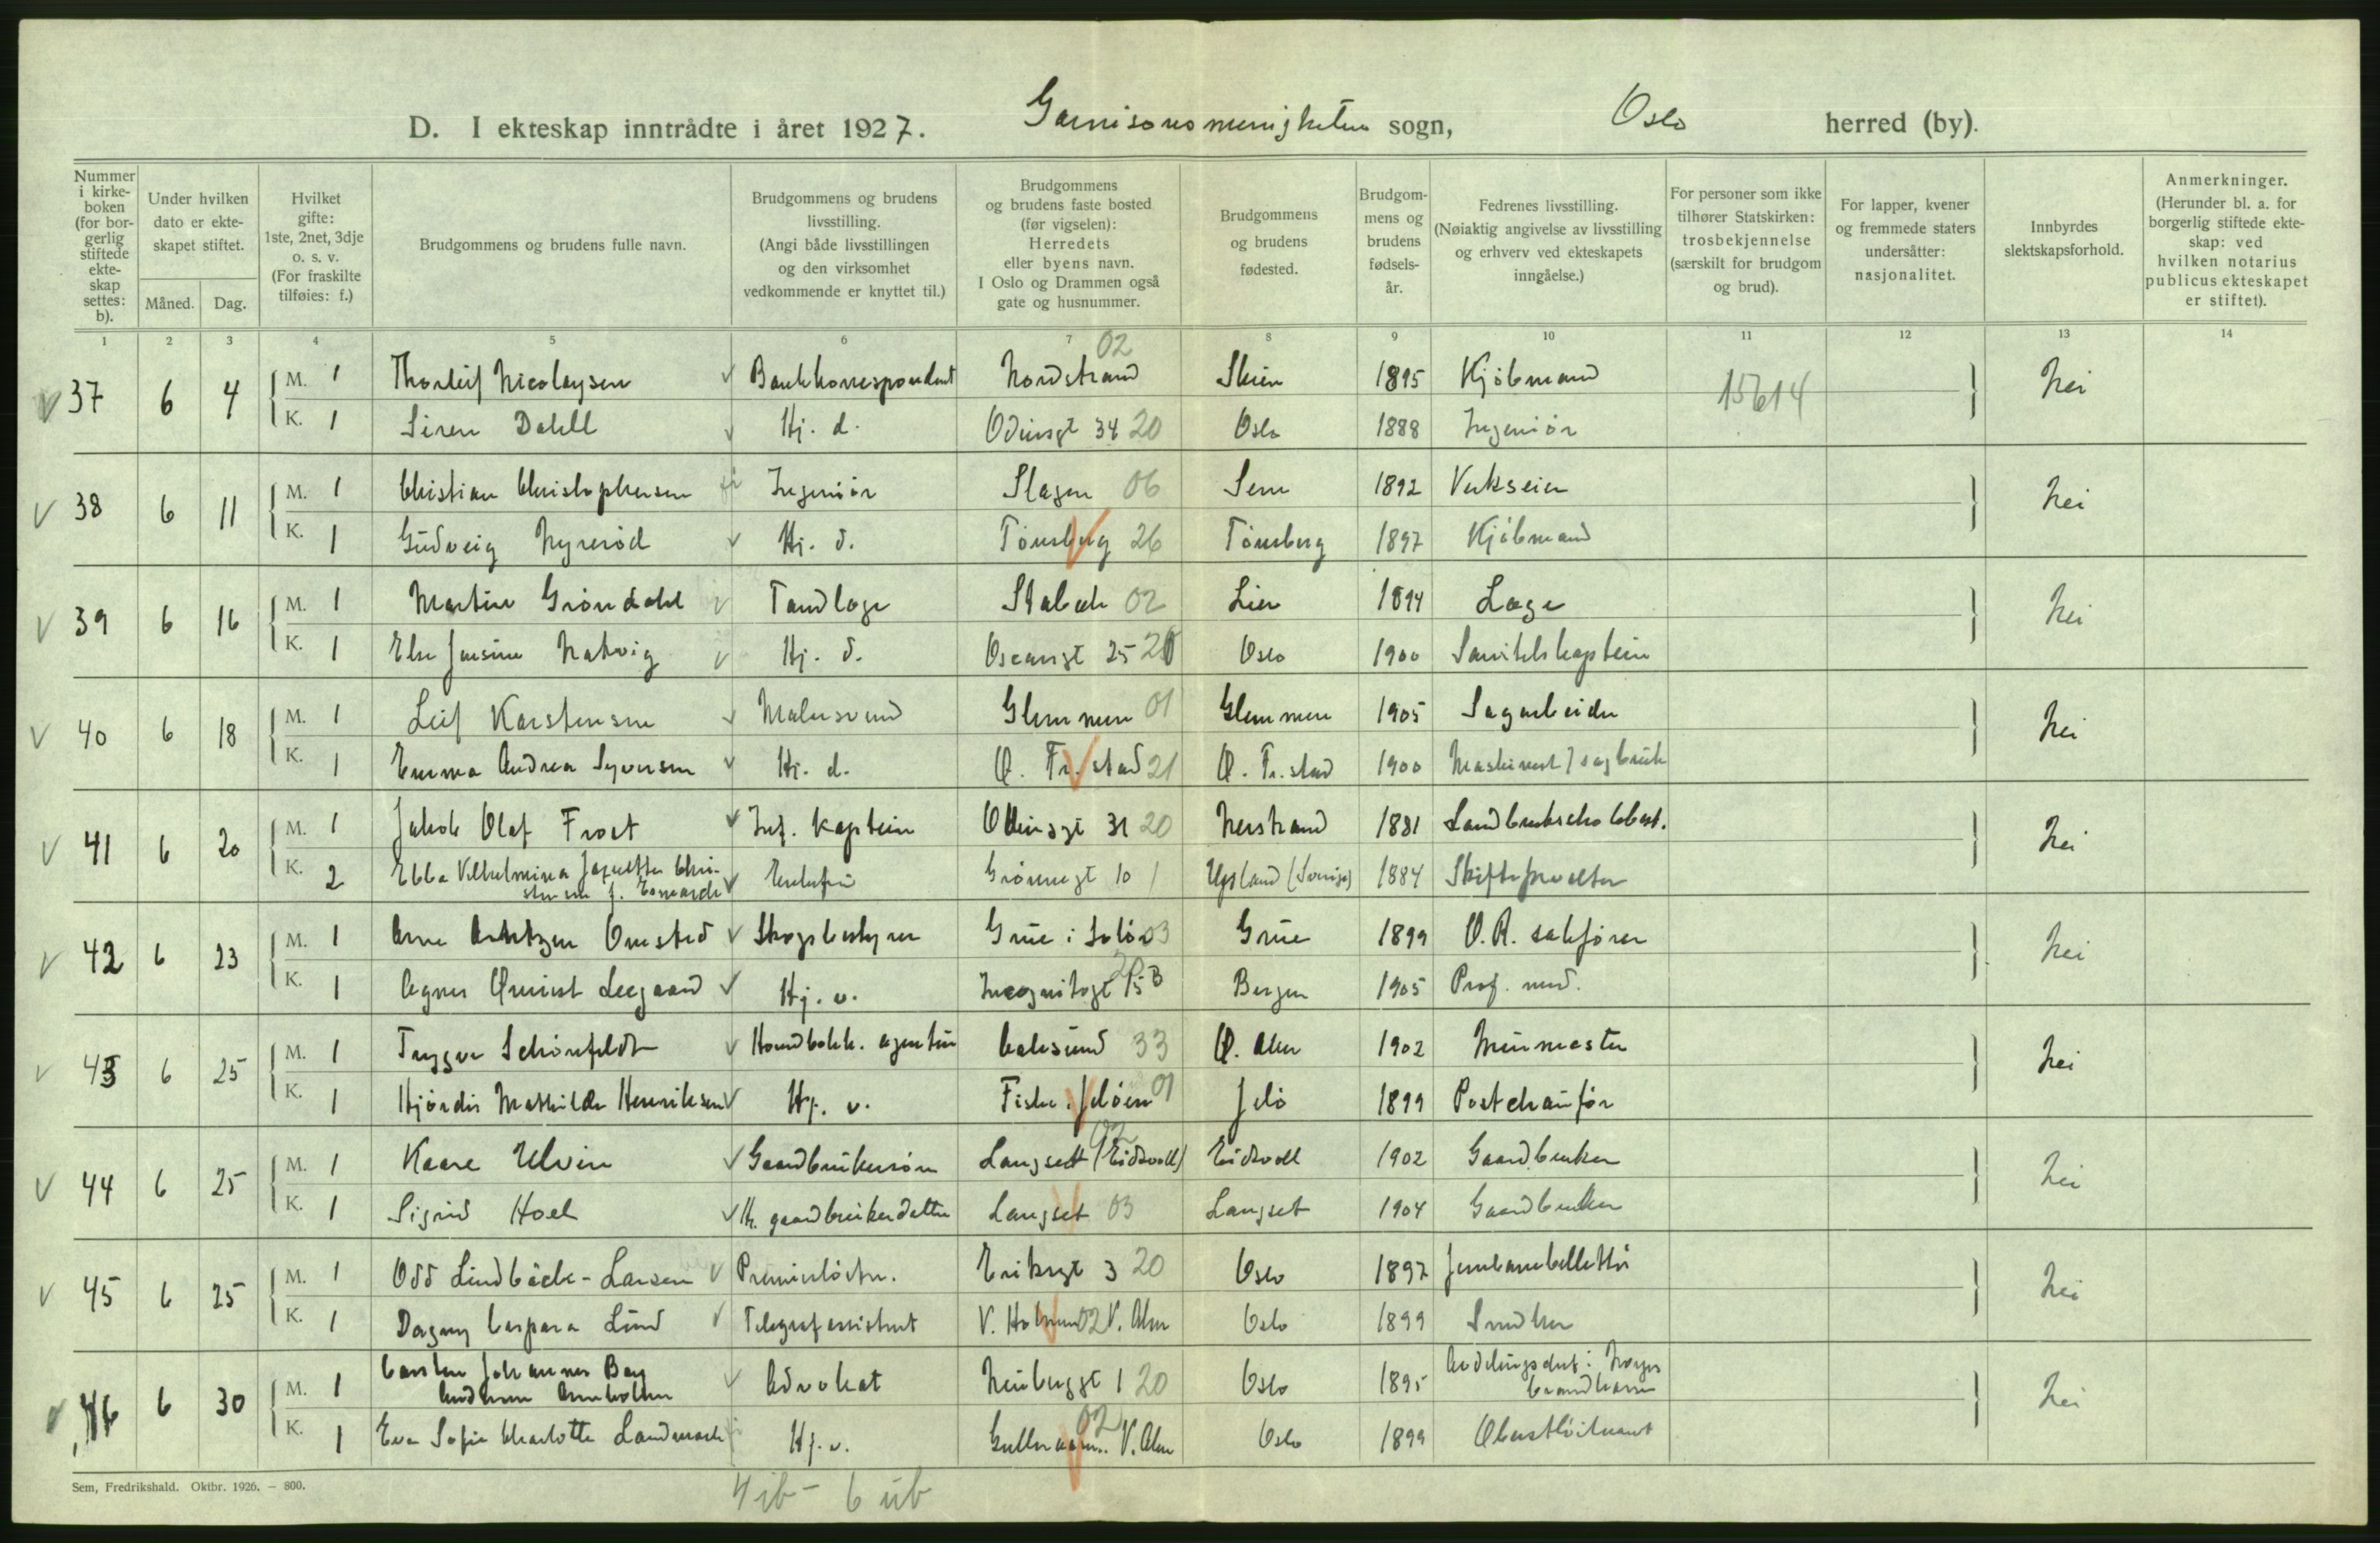 D. I ekteskap inntrådte i året 1927. Garnisonsmenigheten sogn, Oslo herred (by).
Nummer i kirkeboken (for borgerlig stiftede ekteskap settes: b).
Under hvilken dato er ekteskapet stiftet.
Måned. Dag.
Hvilket gifte: 1ste, 2net, 3dje o. s. v. (For fraskilte tilføies: f.)
Brudgommens og brudens fulle navn.
Brudgommens og brudens livsstilling. (Angi både livsstillingen og den virksomhet vedkommende er knyttet til.)
Brudgommens og brudens faste bosted (før vigselen): Herredets eller byens navn. I Oslo og Drammen også gate og husnummer.
Brudgommens og brudens fødested.
Brudgommens og brudens fødselsår.
Fedrenes livsstilling. (Nøiaktig angivelse av livsstilling og erhverv ved ekteskapets inngåelse.)
For personer som ikke tilhører Statskirken: trosbekjennelse (særskilt for brudgom og brud).
For lapper, kvener og fremmede staters undersåtter: nasjonalitet.
Innbyrdes slektskapsforhold.
Anmerkninger. (Herunder bl. a. for borgerlig stiftede ekteskap: ved hvilken notarius publicus ekteskapet er stiftet).
1 2 3 4 5 6 7 8 9 10 11 12 13 14
37 6 4 M. 1 Thorleif Nicolaysen Bankkorrespondent Nordstrand 02 Skien 1895 Kjøbmand 15614 Nei
K. 1 Siren Dahll Hj. d. Odinsgt 34 20 Oslo 1888 Ingeniør
38 6 11 M. 1 Christian Christophersen Ingeniør Slagen 06 Sem 1892 Verkseier Nei
K. 1 Gudveig Myrerød Hj. d. Tønsberg 26 Tønsberg 1897 Kjøbmand
39 6 16 M. 1 Martin Grøndahl Tandlæge Stabæk 02 Lier 1894 Læge Nei
K. 1 Else Jensine Natvig Hj. d. Oscarsgt 25 20 Oslo 1900 Sanitetskaptein
40 6 18 M. 1 Leif Karstensen Malersvend Glemmen 01 Glemmen 1905 Sagarbeider Nei
K. 1 Emma Andrea Syversen Hj. d. Ø. Fr.stad 21 Ø. Fr.stad 1900 Maskinist / sagbruk
41 6 20 M. 1 Jakob Olaf Frost Inf. kaptein Odinsgt 31 20 Nerstrand 1881 Landbrukskolebest. Nei
K. 2 Ebba Vilhelmina Christensen f. Enkefru Grønnegt 10 (Sverige) 1884
42 6 23 M. 1 Arne Arntzen Omsted Skogbestyrer Grue i Solør 03 Grue 1899 O.R. sakfører Nei
K. 1 Agnes Qvinist Leegaard Hj. v. Incognitogt 15 B 20 Bergen 1905 Prof. med.
43 6 25 M. 1 Trygve Schønfeldt Hovedbokh. agentur Aalesund 33 Ø. Aker 1902 Murmester Nei
K. 1 Hjørdis Mathilde Henriksen Hj. v. Jeløen 01 Jelø 1899 Postchauffør
44 6 25 M. 1 Kaare Ulvin Gaardbrukersøn Langset (Eidsvoll) 02 Eidsvoll 1902 Gaardbruker Nei
K. 1 Sigrid Hoel Hj. gaardbrukerdatter Langset 03 Langset 1904 Gaardbruker
45 6 25 M. 1 Odd Lindbäck-Larsen Premierløitn. Eriksgt 3 20 Oslo 1897 Jernbanebillettør Nei
K. 1 Dagny Caspara Lund Telegrafassistent V. Holmen 02 V. Aker Oslo 1899 Snedker
46 6 30 M. 1 Carsten Johannes Bay Advokat Neubergsgt 1 20 Oslo 1895 Avdelingschef i Norges brandkasse Nei
K. 1 Eva Sofie Charlotte Landmark Hj. v. 02 V. Aker Oslo 1899 Oberstløitnant
Sem, Fredrikshald. Oktbr. 1926. — 800.
4 ib - 6 ub